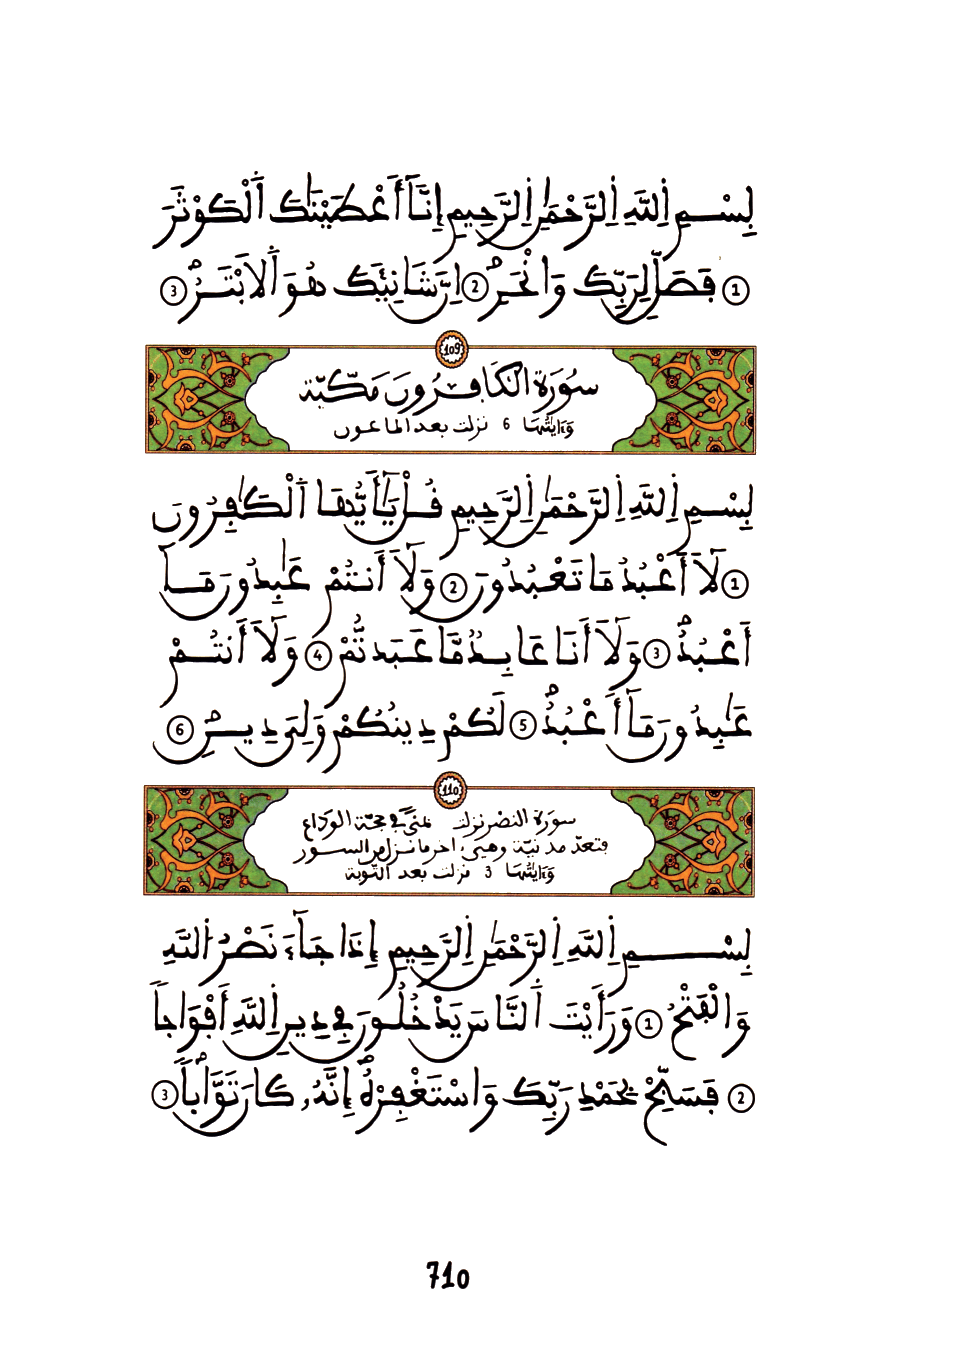 بِسْمِ اِ۬للَّهِ اِ۬لرَّحْمَٰنِ اِ۬لرَّحِيمِ إِنَّآ أَعْطَيْنَٰكَ اَ۬لْكَوْثَرَ
1 فَصَلِّ لِرَبِّكَ وَانْحَرِ۪ 2 اِنَّ شَانِئَكَ هُوَ اَ۬لَابْتَرُ۬ 3
109
سُورَةُ الْكَافِرُونَ مَكِّيَّة
وَءَايَاتُهَا 6 نزلت بعد الماعون
بِسْمِ اِ۬للَّهِ اِ۬لرَّحْمَٰنِ اِ۬لرَّحِيمِ قُلْ يَٰٓأَيُّهَا اَ۬لْكَٰفِرُونَ
1 لَآ أَعْبُدُ مَا تَعْبُدُونَ 2 وَلَآ أَنتُمْ عَٰبِدُونَ مَآ
أَعْبُدُ 3 وَلَآ أَنَا عَابِدٌ مَّا عَبَدتُّمْ 4 وَلَآ أَنتُمْ
عَٰبِدُونَ مَآ أَعْبُدُ 5 لَكُمْ دِينُكُمْ وَلِيَ دِينِ 6
110
سورة النصر نزلت بمنى في حجة الوداع
فتعدّ مدنيّة وهي ءاخر ما نزل من السور
وَءَايَاتُهَا 3 نزلت بعد التوبة
بِسْمِ اِ۬للَّهِ اِ۬لرَّحْمَٰنِ اِ۬لرَّحِيمِ إِذَا جَآءَ نَصْرُ اُ۬للَّهِ
وَالْفَتْحُ 1 وَرَأَيْتَ اَ۬لنَّاسَ يَدْخُلُونَ فِي دِينِ اِ۬للَّهِ أَفْوَاجاً
2 فَسَبِّحْ بِحَمْدِ رَبِّكَ وَاسْتَغْفِرْهُ إِنَّهُۥ كَانَ تَوَّاباً 3
710